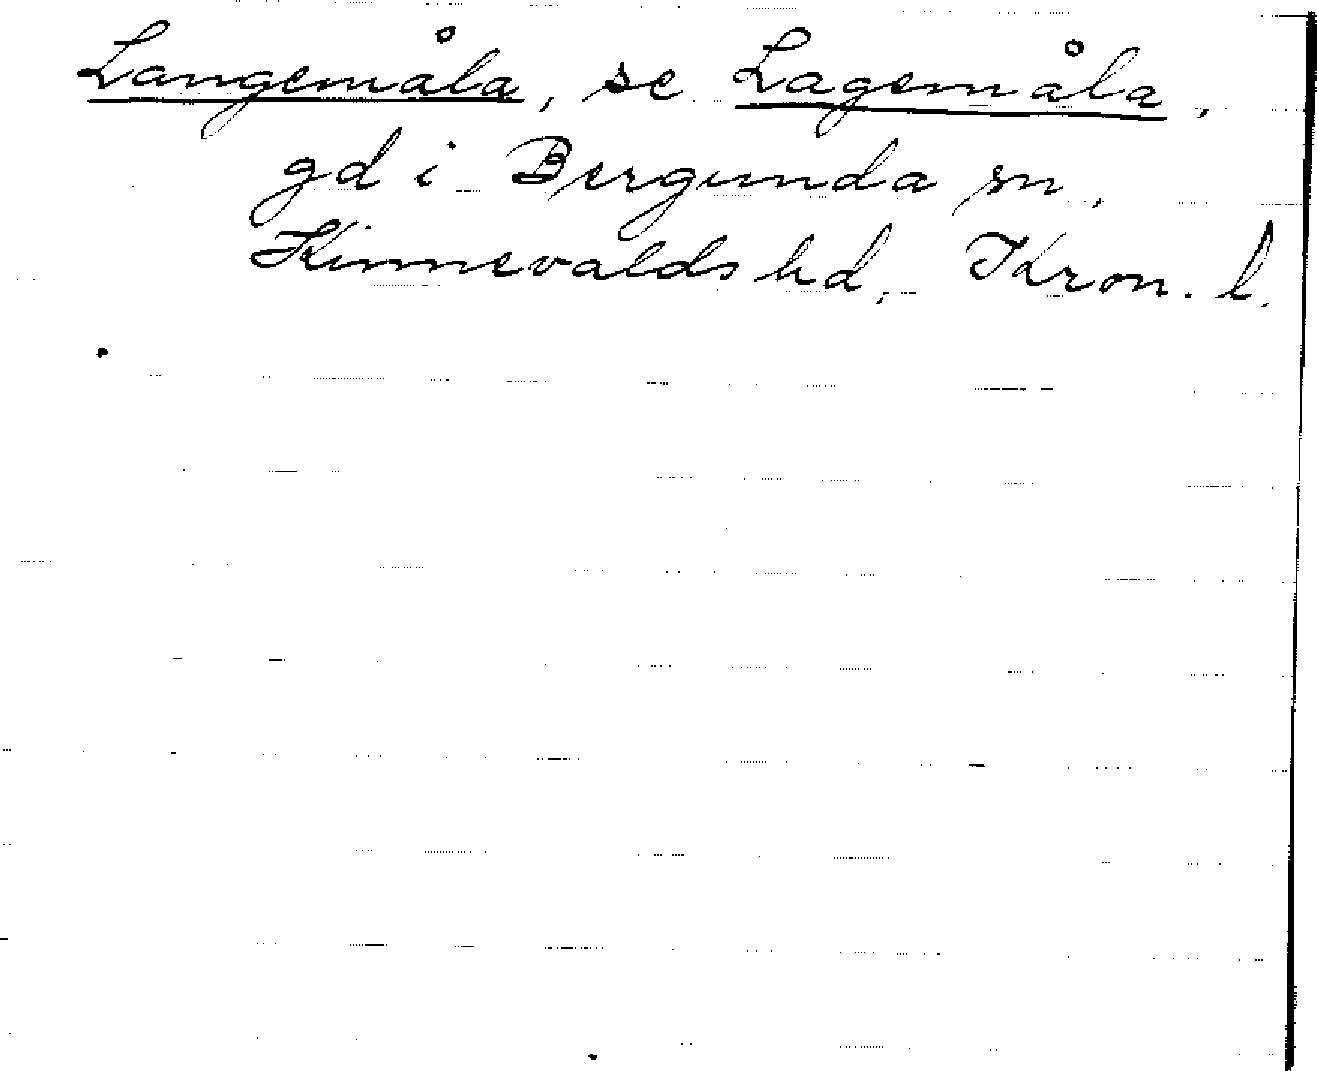 Langemåla, se Lagemåla,
gd i Bergunda sn,
Kinnevalds hd, Kron. l.